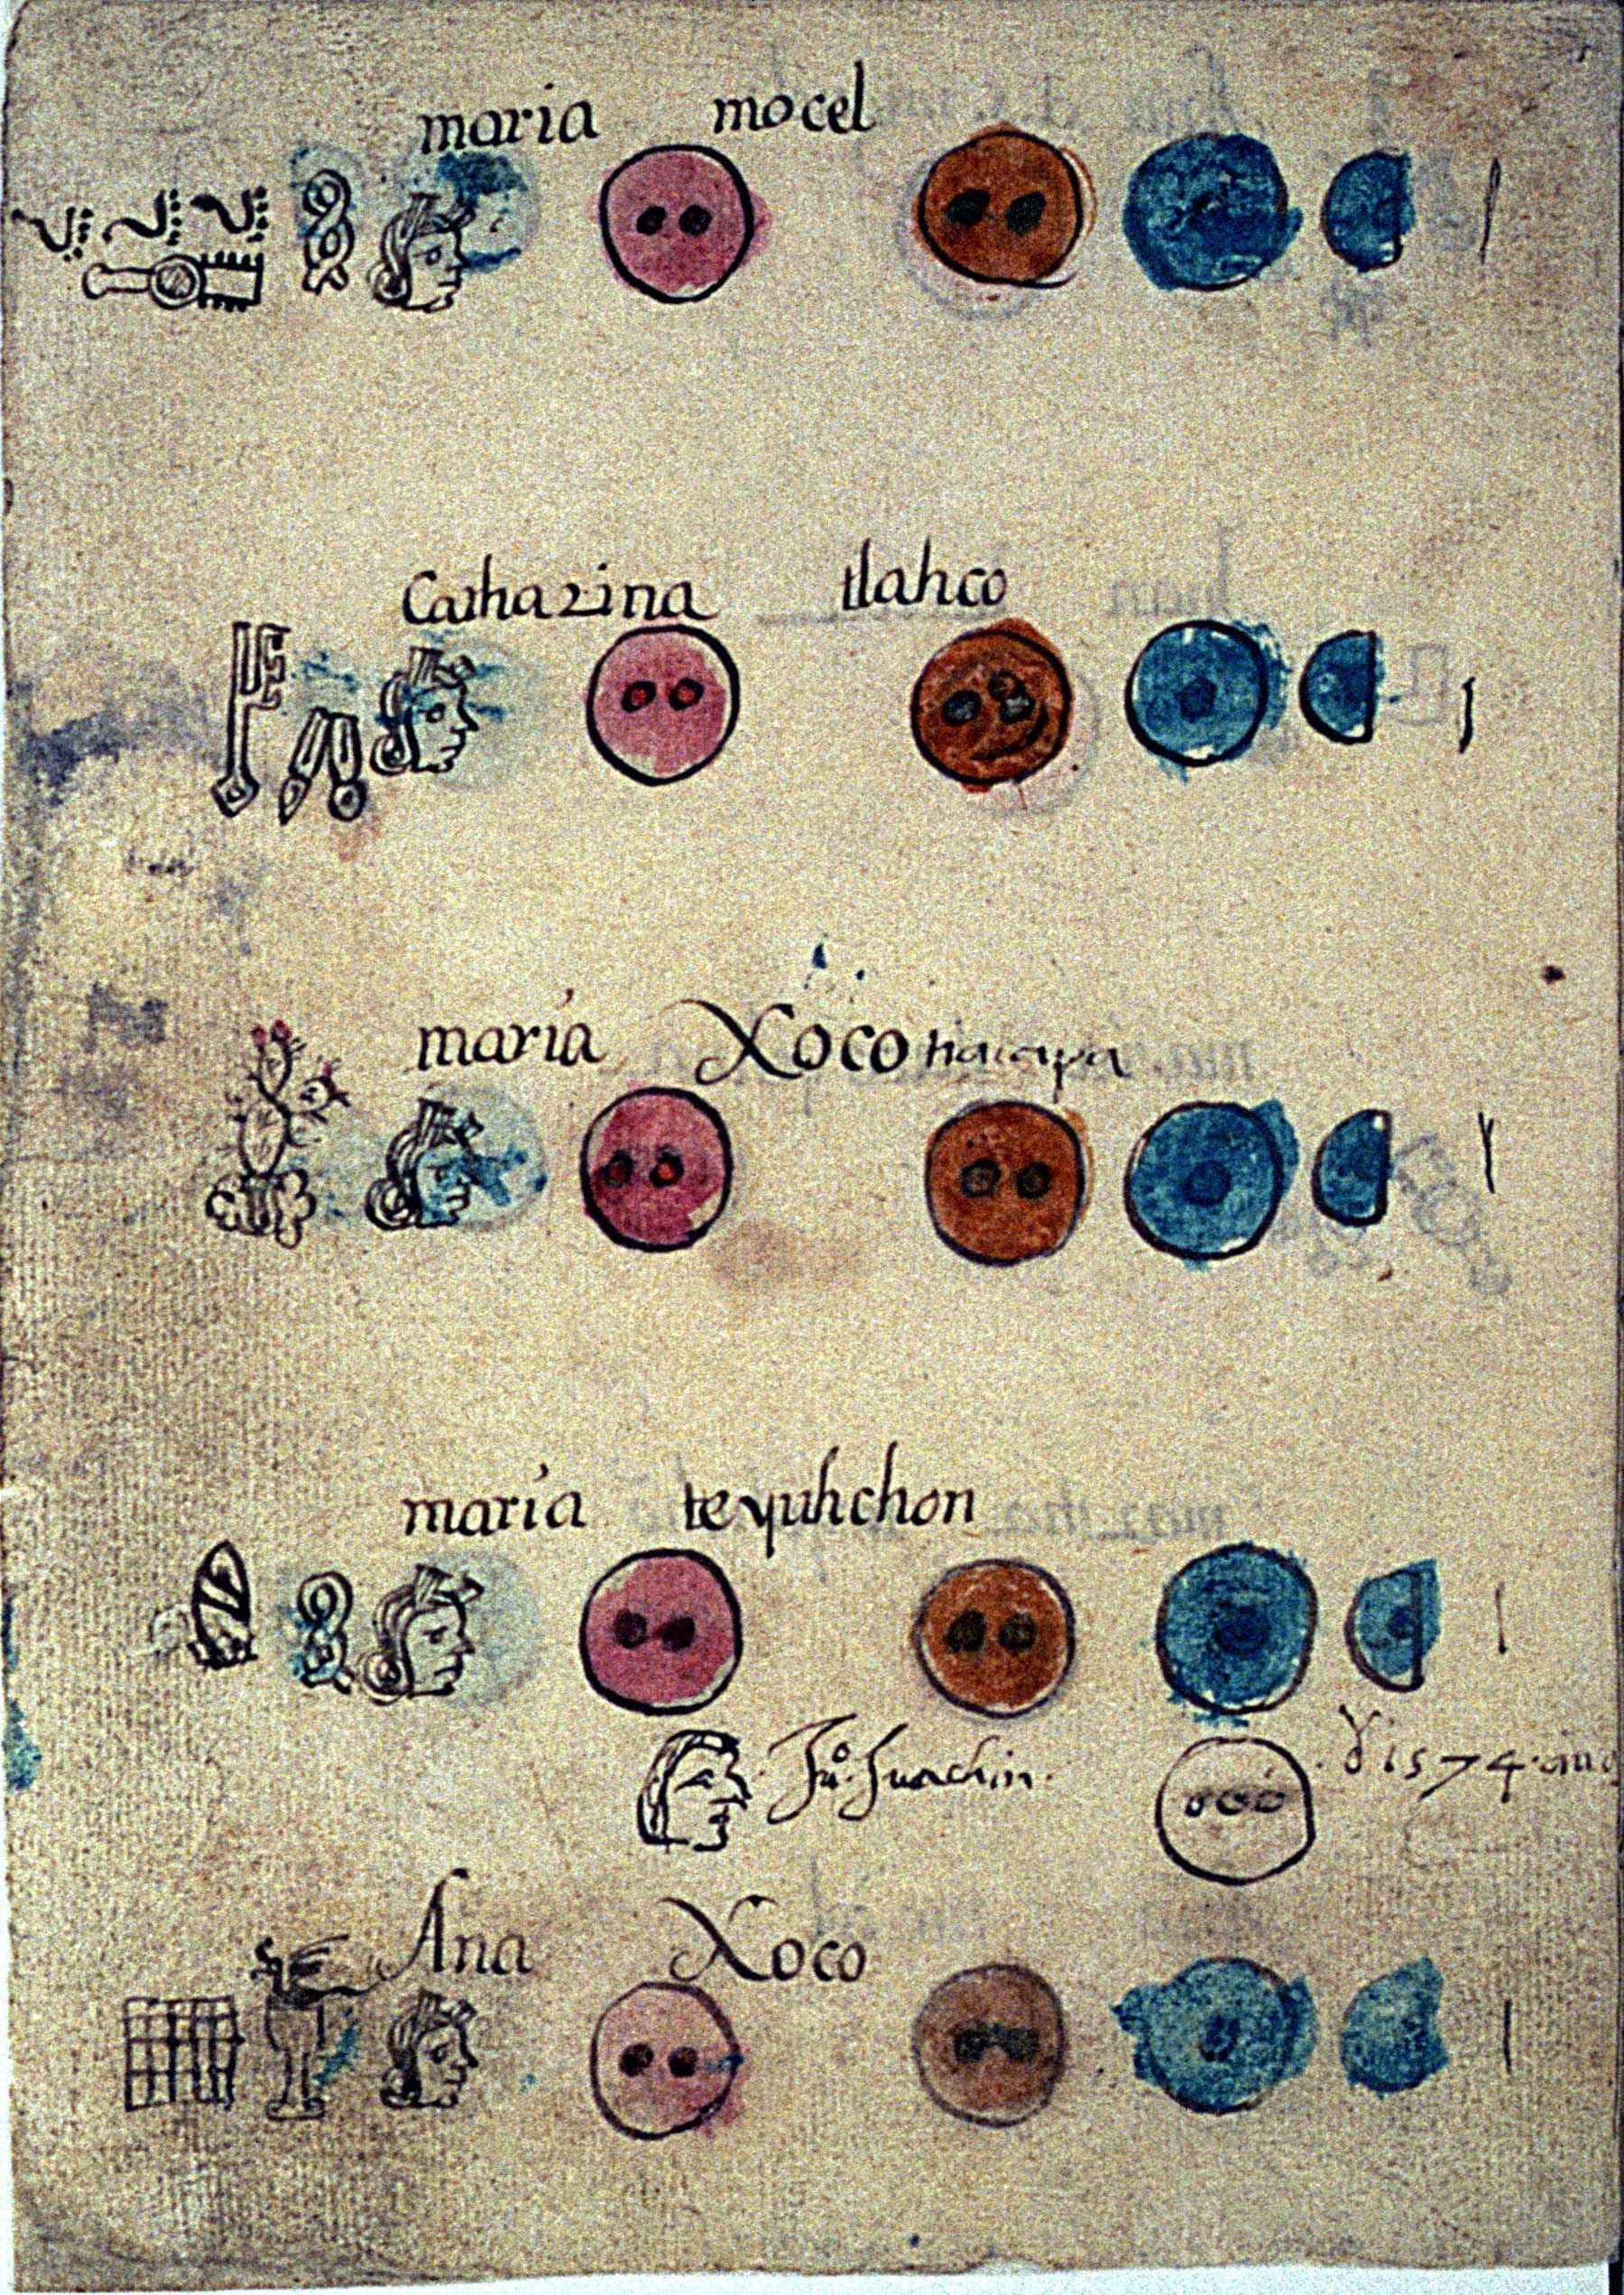 maria mocel
Catharina tlahco
maría Xoco
maría teyuhchon
Juº. Juachin. 1574
Ana Xoco